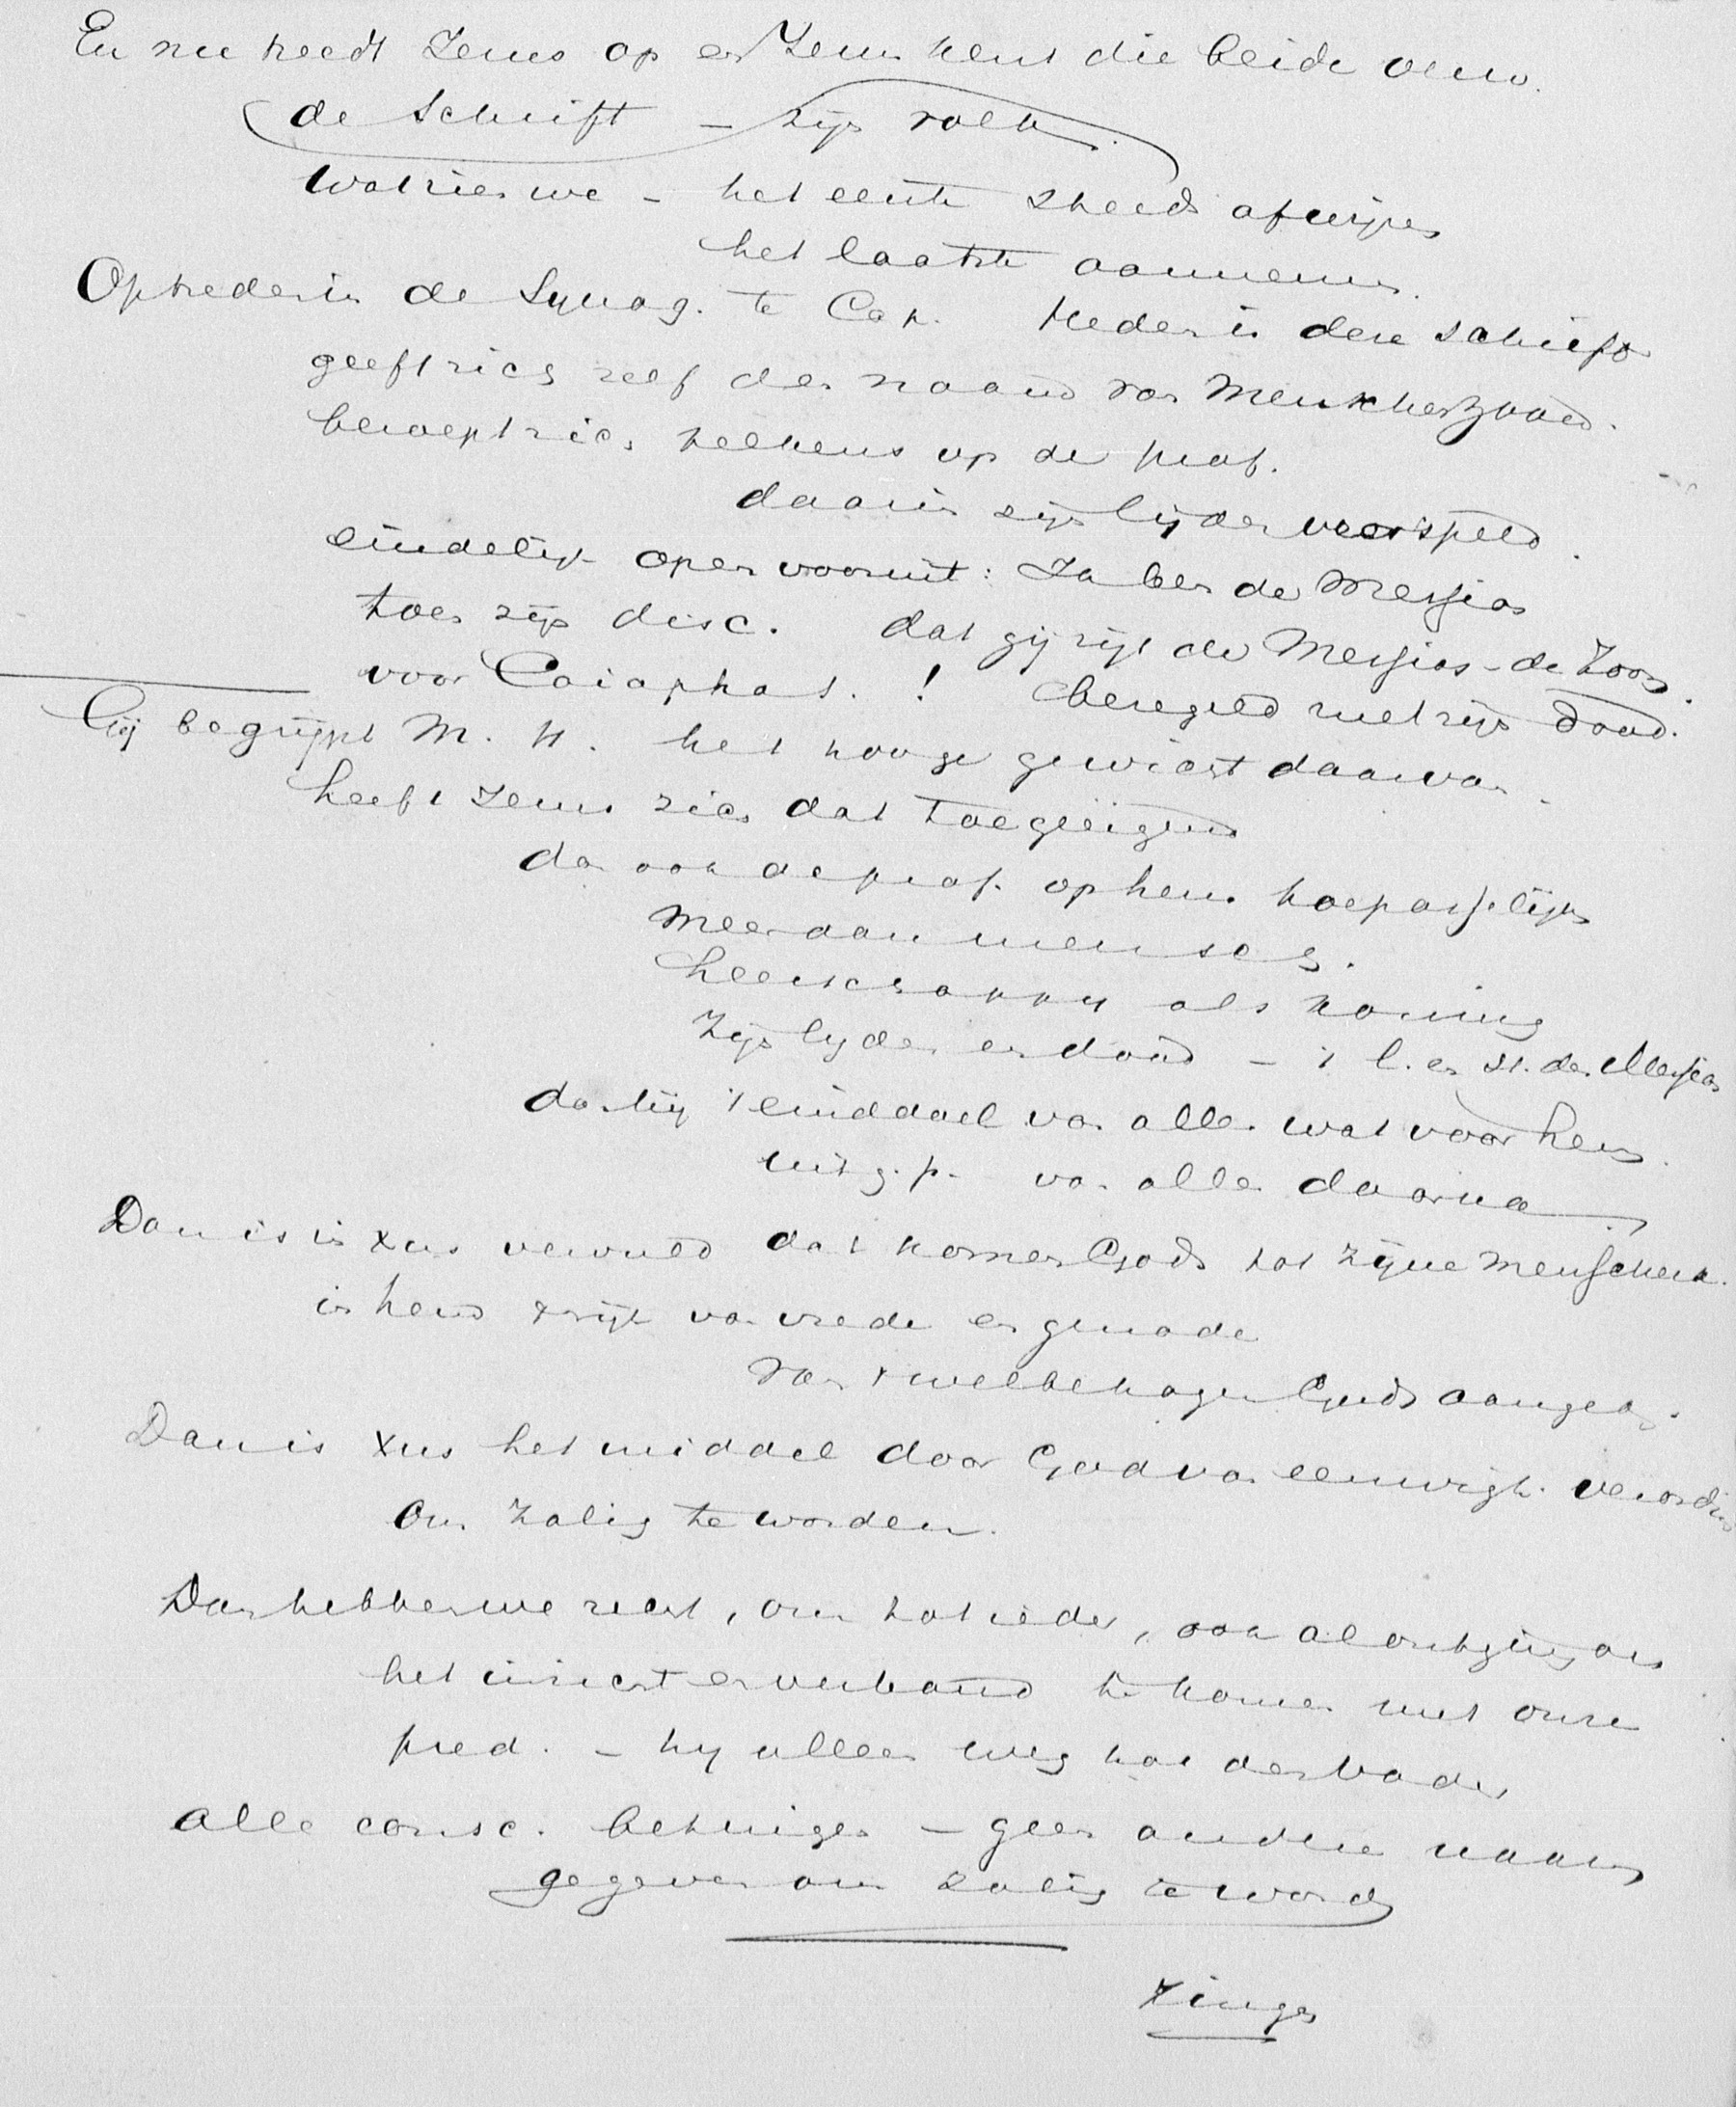 En nu treedt Jezus op en Jezus kent die beide verw.
de Schrift – zijn volk
wat zien we – het eerste steeds afwijzen
het laatste aannemen.
Optreden in de Synag. te Cap. Heden is deze schrift
geeft zich zelf den naam van Menschenzoon.
beroept zich telkens op de prof.
daarin zijn lijden voorspeld.
eindelijk open vooruit: Ik ben de Messias
toen zijn disc. dat gij zijt de Messias – de Zoon.
voor Caiaphas. ! bezegeld met zijn dood.
Gij begrijpt M. H. het hooge gewicht daarvan.
heeft Jezus zich dat toegeëigend
dan ook de prof. op hem toepasselijk
meer dan mensch.
heerschappij als koning
Zijn lijden en dood – 't l. en st. den Messias
dan hij 't einddoel van alles wat voor hem.
uitg.p. van alles daarna
Dan is in Xus vervuld dat komen Gods tot zijne menschenk.
in hem 't rijk van vrede en genade
van 't welbehagen Gods aangeb.
Dan is Xus het middel door God van eeuwigh. verordin
om zalig te worden.
Dan hebben we recht, om tot ieder, ook al ontging ons
het inzicht en verband te komen met onze
pred. – hij alleen weg tot den Vader,
alle consc. betuigen – geen andere naam
gegeven om zalig te word
Zingen